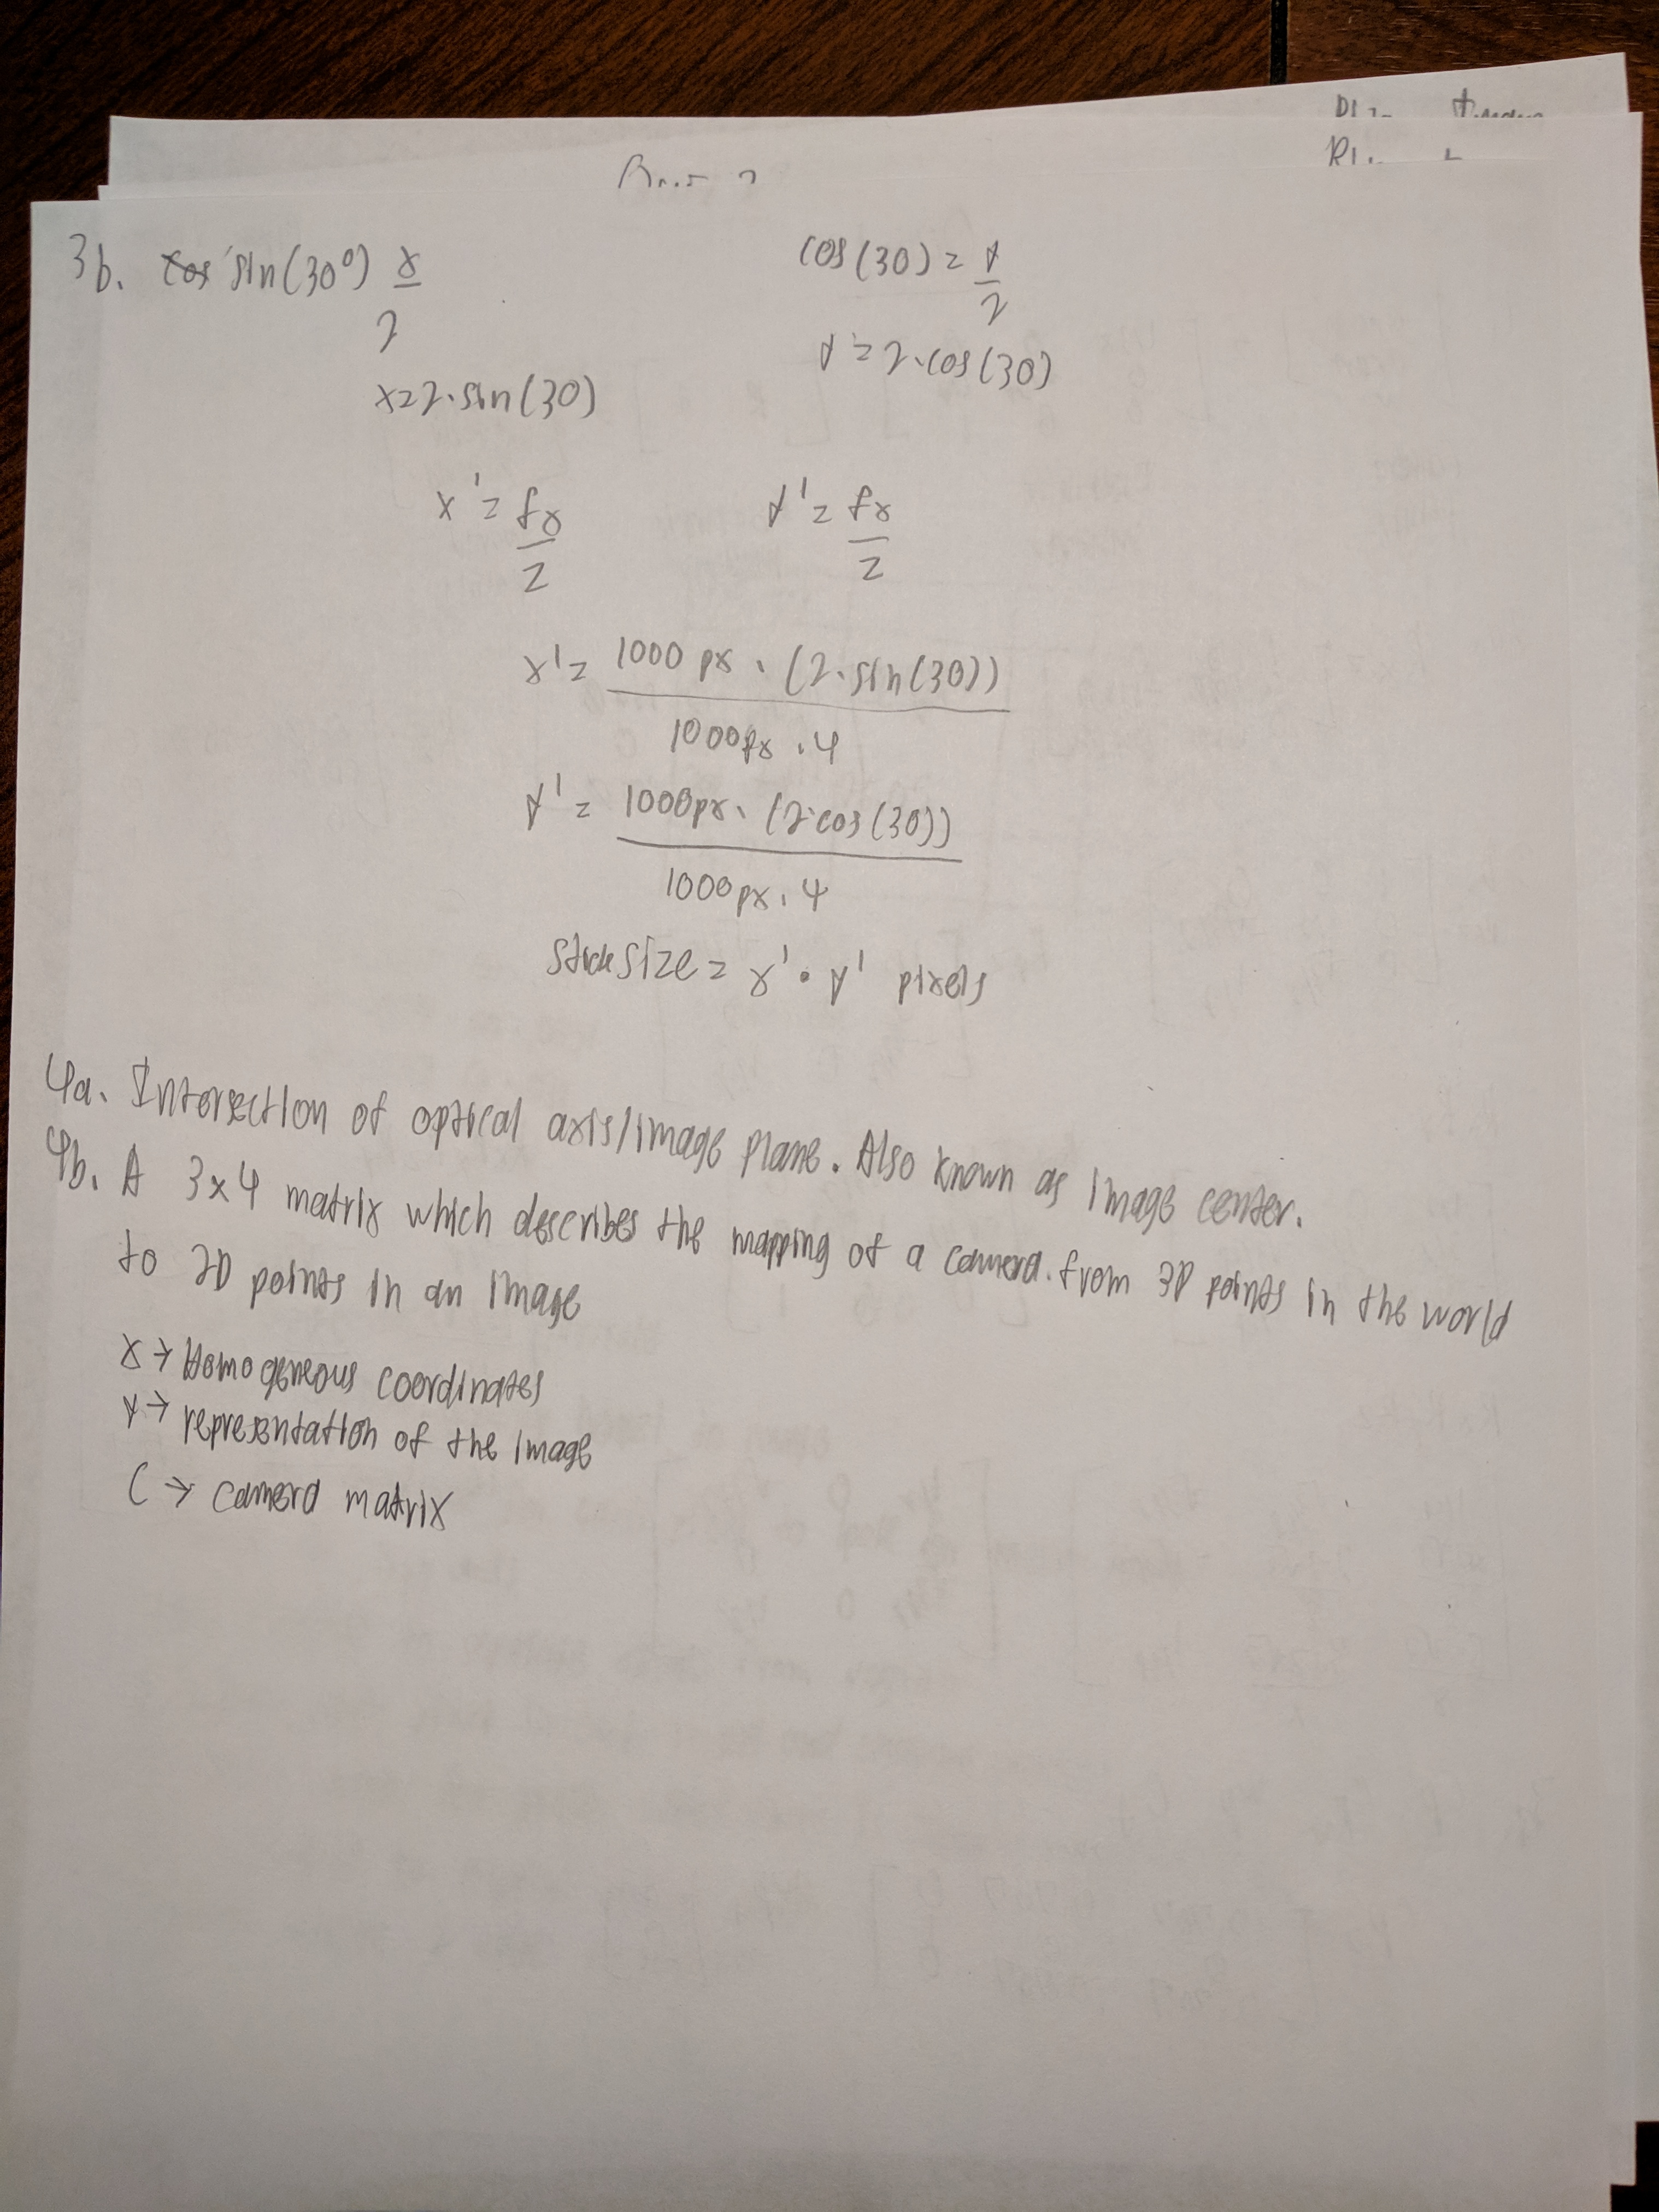 3b. cos sin(30°) x/2
x=2·sin(30)
cos(30) = y/2
y=2·cos(30)
x' = fx/z
y' = fx/z
x' = 1000 px · (2·sin(30)) / 1000px · 4
y' = 1000px · (2·cos(30)) / 1000px · 4
stick size = x' · y' pixels
4a. Intersection of optical axis/image plane. Also known as image center.
4b. A 3x4 matrix which describes the mapping of a camera. from 3D points in the world
to 2D points in an image
x → Homogeneous coordinates
y → representation of the image
C → camera matrix